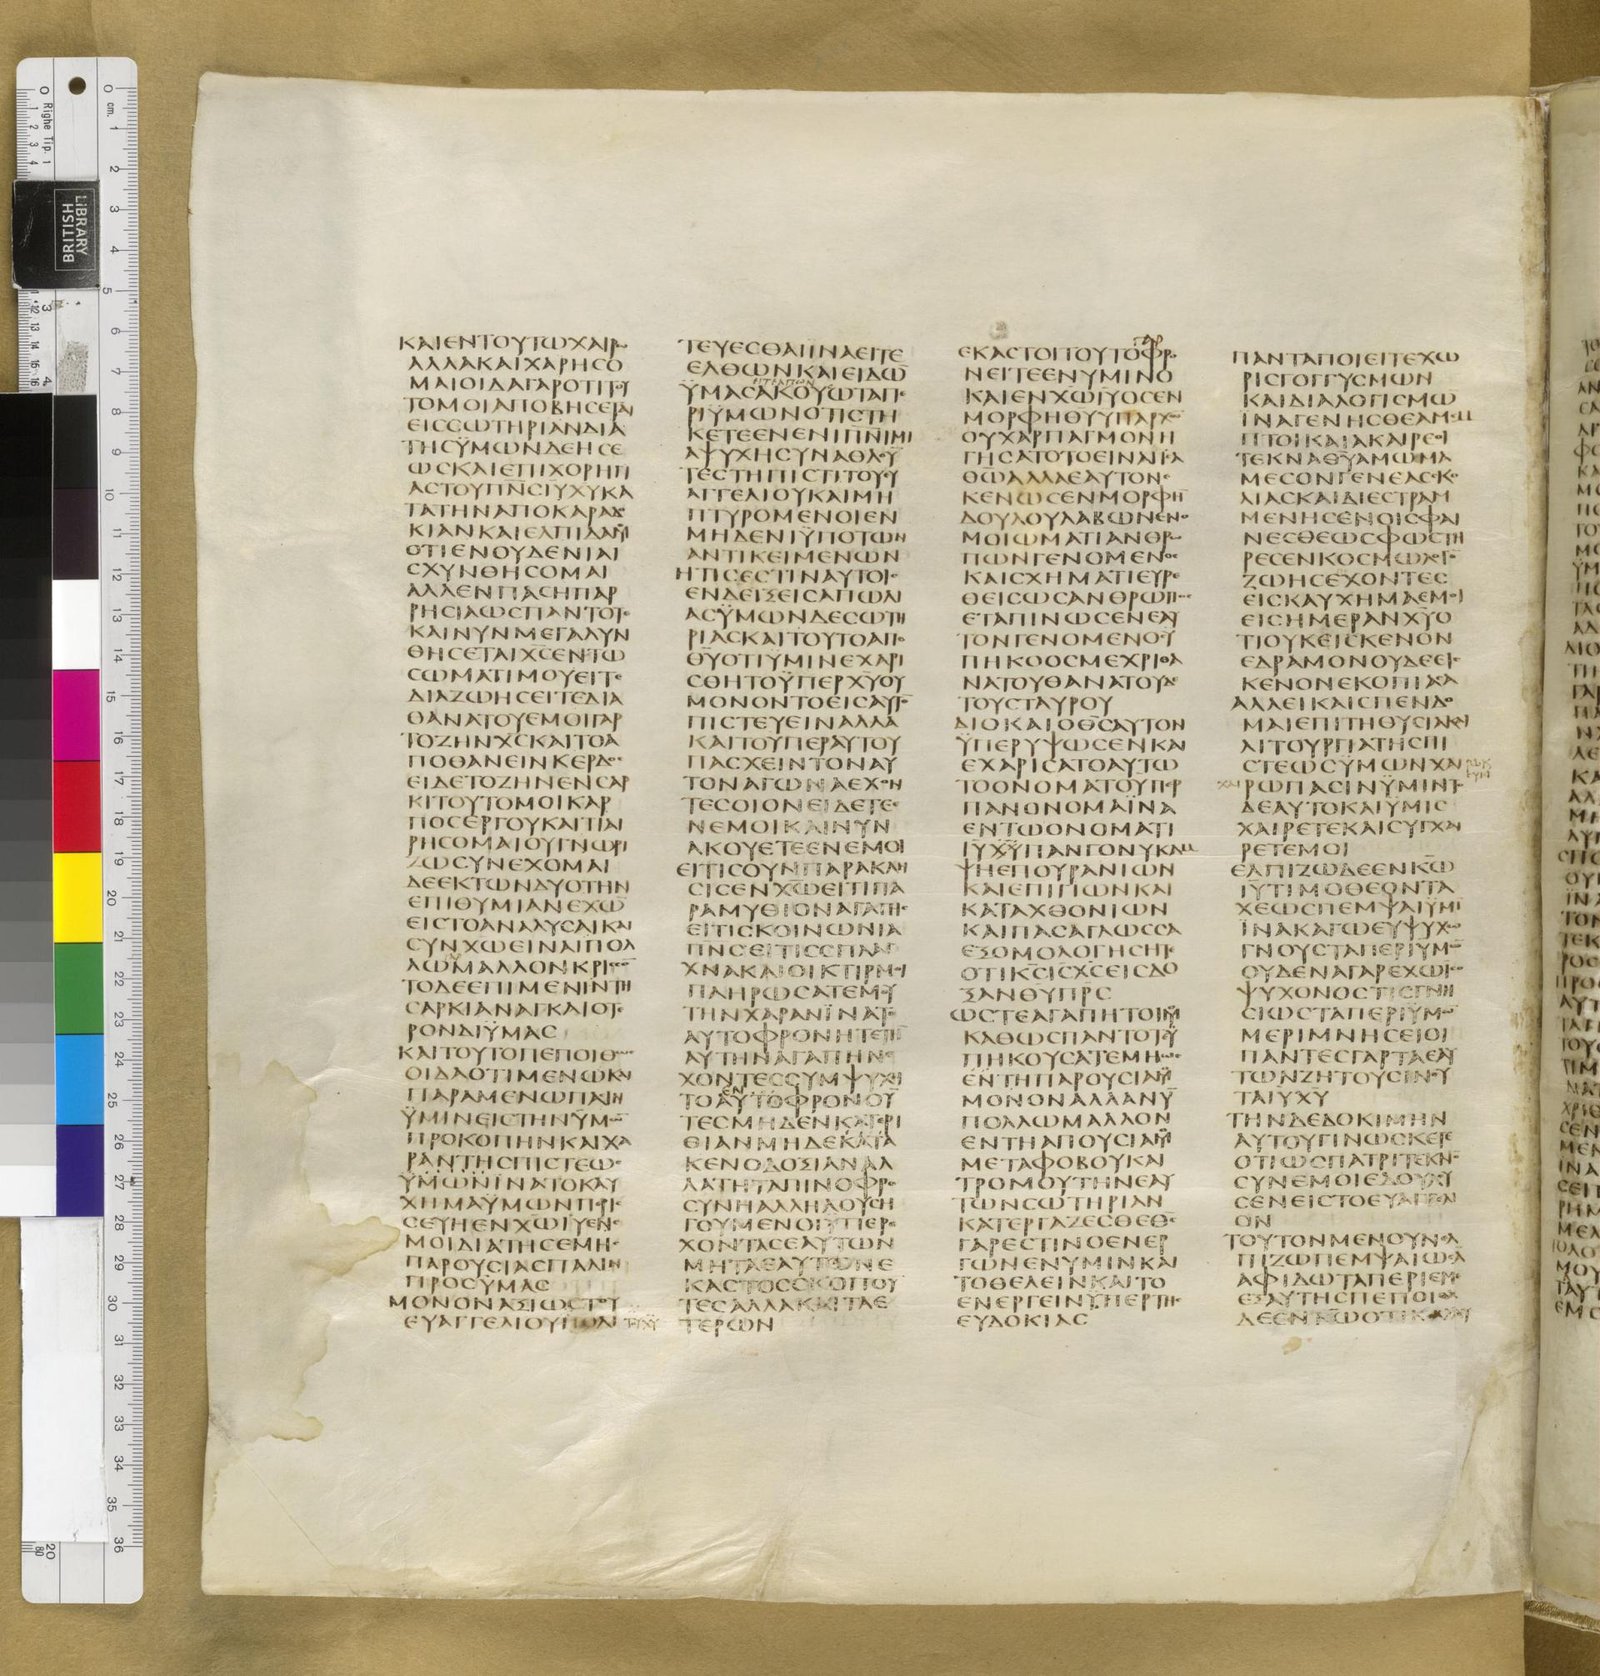 ΚΑΙΕΝΤΟΥΤΩΧΑΙΡΩ
ΑΛΛΑΚΑΙΧΑΡΗϹΟ
ΜΑΙΟΙΔΑΓΑΡΟΤΙΤΟΥ
ΤΟΜΟΙΑΠΟΒΗϹΕΤΑΙ
ΕΙϹϹΩΤΗΡΙΑΝΔΙΑ
ΤΗϹΫΜΩΝΔΕΗϹΕ
ΩϹΚΑΙΕΠΙΧΟΡΗΓΙ
ΑϹΤΟΥΠΝ̅ϹΙ̅Υ̅Χ̅Υ̅ΚΑ
ΤΑΤΗΝΑΠΟΚΑΡΑΔΟ
ΚΙΑΝΚΑΙΕΛΠΙΔΑΜΟΥ
ΟΤΙΕΝΟΥΔΕΝΙΑΙ
ϹΧΥΝΘΗϹΟΜΑΙ
ΑΛΛΕΝΠΑϹΗΠΑΡ
ΡΗϹΙΑΩϹΠΑΝΤΟΤΕ
ΚΑΙΝΥΝΜΕΓΑΛΥΝ
ΘΗϹΕΤΑΙΧ̅Ϲ̅ΕΝΤΩ
ϹΩΜΑΤΙΜΟΥΕΙΤΕ
ΔΙΑΖΩΗϹΕΙΤΕΔΙΑ
ΘΑΝΑΤΟΥΕΜΟΙΓΑΡ
ΤΟΖΗΝΧ̅Ϲ̅ΚΑΙΤΟΑ
ΠΟΘΑΝΕΙΝΚΕΡΔΟϹ
ΕΙΔΕΤΟΖΗΝΕΝϹΑΡ
ΚΙΤΟΥΤΟΜΟΙΚΑΡ
ΠΟϹΕΡΓΟΥΚΑΙΤΙΑΙ
ΡΗϹΟΜΑΙΟΥΓΝΩΡΙ
ΖΩϹΥΝΕΧΟΜΑΙ
ΔΕΕΚΤΩΝΔΥΟΤΗΝ
ΕΠΙΘΥΜΙΑΝΕΧΩ̅
ΕΙϹΤΟΑΝΑΛΥϹΑΙΚΑΙ
ϹΥΝΧ̅Ω̅ΕΙΝΑΙΠΟΛ
ΛΩΜΑΛΛΟΝΚΡΙϹϹΟ̅
ΤΟΔΕΕΠΙΜΕΝΙΝΤΗ
ϹΑΡΚΙΑΝΑΓΚΑΙΟΤΕ
ΡΟΝΔΙΫΜΑϹ
ΚΑΙΤΟΥΤΟΠΕΠΟΙΘΩϹ
ΟΙΔΑΟΤΙΜΕΝΩΚΑΙ
ΠΑΡΑΜΕΝΩΠΑϹΙ
ΫΜΙΝΕΙϹΤΗΝΫΜΩ̅
ΠΡΟΚΟΠΗΝΚΑΙΧΑ
ΡΑΝΤΗϹΠΙϹΤΕΩϹ
ΫΜΩΝΪΝΑΤΟΚΑΥ
ΧΗΜΑΫΜΩΝΠΕΡΙϹ
ϹΕΥΗΕΝΧ̅Ω̅Ι̅Υ̅ΕΝΕ
ΜΟΙΔΙΑΤΗϹΕΜΗϹ
ΠΑΡΟΥϹΙΑϹΠΑΛΙΝ
ΠΡΟϹΫΜΑϹ
ΜΟΝΟΝΑΞΙΩϹΤΟΥ
ΕΥΑΓΓΕΛΙΟΥΠΟΛΙ
ΤΕΥΕϹΘΑΙΪΝΑΕΙΤΕ
ΕΛΘΩΝΚΑΙΕΙΔΩ̅
ΫΜΑϹΑΚΟΥΩΤΑΠΕ
ΡΙΫΜΩΝΟΤΙϹΤΗ
ΚΕΤΕΕΝΕΝΙΠΝ̅Ι̅ΜΙ
ΑΨΥΧΗϹΥΝΑΘΛΟΥ̅
ΤΕϹΤΗΠΙϹΤΙΤΟΥΕΥ
ΑΓΓΕΛΙΟΥΚΑΙΜΗ
ΠΤΥΡΟΜΕΝΟΙΕΝ
ΜΗΔΕΝΙΫΠΟΤΩΝ
ΑΝΤΙΚΕΙΜΕΝΩΝ
ΗΤΙϹΕϹΤΙΝΑΥΤΟΙϹ
ΕΝΔΕΙΞΕΙϹΑΠΩΛΙ
ΑϹΫΜΩΝΔΕϹΩΤΗ
ΡΙΑϹΚΑΙΤΟΥΤΟΑΠΟ
Θ̅Υ̅ΟΤΙΫΜΙΝΕΧΑΡΙ
ϹΘΗΤΟΫΠΕΡΧ̅Υ̅ΟΥ
ΜΟΝΟΝΤΟΕΙϹΑΥΤΟ̅
ΠΙϹΤΕΥΕΙΝΑΛΛΑ
ΚΑΙΤΟΥΠΕΡΑΥΤΟΥ
ΠΑϹΧΕΙΝΤΟΝΑΥ
ΤΟΝΑΓΩΝΑΕΧΟΝ
ΤΕϹΟΙΟΝΕΙΔΕΤΕΕ
ΝΕΜΟΙΚΑΙΝΥΝ
ΑΚΟΥΕΤΕΕΝΕΜΟΙ
ΕΙΤΙϹΟΥΝΠΑΡΑΚΛΗ
ϹΙϹΕΝΧ̅Ω̅ΕΙΤΙΠΑ
ΡΑΜΥΘΙΟΝΑΓΑΠΗϹ
ΕΙΤΙϹΚΟΙΝΩΝΙΑ
ΠΝ̅Ϲ̅ΕΙΤΙϹϹΠΛΑΓ
ΧΝΑΚΑΙΟΙΚΤΙΡΜΟΙ
ΠΛΗΡΩϹΑΤΕΜΟΥ
ΤΗΝΧΑΡΑΝΪΝΑΤΟ
ΑΥΤΟΦΡΟΝΗΤΕΤΗ̅
ΑΥΤΗΝΑΓΑΠΗΝΕ
ΧΟΝΤΕϹϹΥΜΨΥΧΟΙ
ΤΟΑΥΤΟΦΡΟΝΟΥ̅
ΤΕϹΜΗΔΕΝΚΑΤΕΡΙ
ΘΙΑΝΜΗΔΕΚΑΤΑ
ΚΕΝΟΔΟΞΙΑΝΑΛ
ΛΑΤΗΤΑΠΙΝΟΦΡΟ
ϹΥΝΗΑΛΛΗΛΟΥϹΗ
ΓΟΥΜΕΝΟΙΫΠΕΡΕ
ΧΟΝΤΑϹΕΑΥΤΩΝ
ΜΗΤΑΕΑΥΤΩΝΕ
ΚΑϹΤΟϹϹΚΟΠΟΥ̅
ΤΕϹΑΛΛΑΚΑΙΤΑΕ
ΤΕΡΩΝ
ΕΚΑϹΤΟΙΤΟΥΤΟΦΡΟ
ΝΕΙΤΕΕΝΥΜΙΝΟ
ΚΑΙΕΝΧ̅Ω̅Ι̅Υ̅ΟϹΕΝ
ΜΟΡΦΗΘ̅Υ̅ΥΠΑΡΧΩ̅
ΟΥΧΑΡΠΑΓΜΟΝΗ
ΓΗϹΑΤΟΤΟΕΙΝΑΙΙϹΑ
Θ̅Ω̅ΑΛΛΑΕΑΥΤΟΝΕ
ΚΕΝΩϹΕΝΜΟΡΦΗ̅
ΔΟΥΛΟΥΛΑΒΩΝΕΝΟ
ΜΟΙΩΜΑΤΙΑΝΘΡΩ
ΠΩΝΓΕΝΟΜΕΝΟϹ
ΚΑΙϹΧΗΜΑΤΙΕΥΡΕ
ΘΕΙϹΩϹΑΝΘΡΩΠΟϹ
ΕΤΑΠΙΝΩϹΕΝΕΑΥ
ΤΟΝΓΕΝΟΜΕΝΟϹΥ
ΠΗΚΟΟϹΜΕΧΡΙΘΑ
ΝΑΤΟΥΘΑΝΑΤΟΥΔΕ
ΤΟΥϹΤΑΥΡΟΥ
ΔΙΟΚΑΙΟΘ̅Ϲ̅ΑΥΤΟΝ
ΫΠΕΡΥΨΩϹΕΝΚΑΙ
ΕΧΑΡΙϹΑΤΟΑΥΤΩ
ΤΟΟΝΟΜΑΤΟΥΠΕΡ
ΠΑΝΟΝΟΜΑΪΝΑ
ΕΝΤΩΟΝΟΜΑΤΙ
Ι̅Υ̅Χ̅Υ̅ΠΑΝΓΟΝΥΚΑΜ
ΨΗΕΠΟΥΡΑΝΙΩΝ
ΚΑΙΕΠΙΓΙΩΝΚΑΙ
ΚΑΤΑΧΘΟΝΙΩΝ
ΚΑΙΠΑϹΑΓΛΩϹϹΑ
ΕΞΟΜΟΛΟΓΗϹΗΤΕ
ΟΤΙΚ̅Ϲ̅Ι̅Ϲ̅Χ̅Ϲ̅ΕΙϹΔΟ
ΞΑΝΘ̅Υ̅Π̅Ρ̅Ϲ̅
ΩϹΤΕΑΓΑΠΗΤΟΙΜΟΥ
ΚΑΘΩϹΠΑΝΤΟΤΕΫ
ΠΗΚΟΥϹΑΤΕΜΗΩϹ
ΕΝΤΗΠΑΡΟΥϹΙΑΜΟΥ
ΜΟΝΟΝΑΛΛΑΝΥ̅
ΠΟΛΛΩΜΑΛΛΟΝ
ΕΝΤΗΑΠΟΥϹΙΑΜΟΥ
ΜΕΤΑΦΟΒΟΥΚΑΙ
ΤΡΟΜΟΥΤΗΝΕΑΥ
ΤΩΝϹΩΤΗΡΙΑΝ
ΚΑΤΕΡΓΑΖΕϹΘΕΘ̅Ϲ̅
ΓΑΡΕϹΤΙΝΟΕΝΕΡ
ΓΩΝΕΝΥΜΙΝΚΑΙ
ΤΟΘΕΛΕΙΝΚΑΙΤΟ
ΕΝΕΡΓΕΙΝΫΠΕΡΤΗϹ
ΕΥΔΟΚΙΑϹ
ΠΑΝΤΑΠΟΙΕΙΤΕΧΩ
ΡΙϹΓΟΓΓΥϹΜΩΝ
ΚΑΙΔΙΑΛΟΓΙϹΜΩ̅
ΪΝΑΓΕΝΗϹΘΕΑΜΕΜ
ΠΤΟΙΚΑΙΑΚΑΙΡΕΟΙ
ΤΕΚΝΑΘ̅Υ̅ΑΜΩΜΑ
ΜΕϹΟΝΓΕΝΕΑϹϹΚΟ
ΛΙΑϹΚΑΙΔΙΕϹΤΡΑΜ
ΜΕΝΗϹΕΝΟΙϹΦΑΙ
ΝΕϹΘΕΩϹΦΩϹΤΗ
ΡΕϹΕΝΚΟϹΜΩΛΟΓΟ̅
ΖΩΗϹΕΧΟΝΤΕϹ
ΕΙϹΚΑΥΧΗΜΑΕΜΟΙ
ΕΙϹΗΜΕΡΑΝΧ̅Υ̅Ο
ΤΙΟΥΚΕΙϹΚΕΝΟΝ
ΕΔΡΑΜΟΝΟΥΔΕΕΙϹ
ΚΕΝΟΝΕΚΟΠΙΑϹΑ
ΑΛΛΕΙΚΑΙϹΠΕΝΔΟ
ΜΑΙΕΠΙΤΗΘΥϹΙΑΚΑΙ
ΛΙΤΟΥΡΓΙΑΤΗϹΠΙ
ϹΤΕΩϹΫΜΩΝΧΑΙ
ΡΩΠΑϹΙΝΫΜΙΝΤΟ
ΔΕΑΥΤΟΚΑΙΫΜΙϹ
ΧΑΙΡΕΤΕΚΑΙϹΥΓΧΑΙ
ΡΕΤΕΜΟΙ
ΕΛΠΙΖΩΔΕΕΝΚ̅Ω̅
Ι̅Υ̅ΤΙΜΟΘΕΟΝΤΑ
ΧΕΩϹΠΕΜΨΑΙΫΜΙ
ΪΝΑΚΑΓΩΕΥΨΥΧΩ
ΓΝΟΥϹΤΑΠΕΡΙΫΜΩ̅
ΟΥΔΕΝΑΓΑΡΕΧΩΙϹΟ
ΨΥΧΟΝΟϹΤΙϹΓΝΗ
ϹΙΩϹΤΑΠΕΡΙΫΜΩ̅
ΜΕΡΙΜΝΗϹΕΙΟΙ
ΠΑΝΤΕϹΓΑΡΤΑΕΑΥ
ΤΩΝΖΗΤΟΥϹΙΝΟΥ
ΤΑΙ̅Υ̅Χ̅Υ̅
ΤΗΝΔΕΔΟΚΙΜΗΝ
ΑΥΤΟΥΓΙΝΩϹΚΕΤΕ
ΟΤΙΩϹΠΑΤΡΙΤΕΚΝΟ̅
ϹΥΝΕΜΟΙΕΔΟΥΛΕΥ
ϹΕΝΕΙϹΤΟΕΥΑΓΓΕΛΙ
ΟΝ
ΤΟΥΤΟΝΜΕΝΟΥΝΕΛ
ΠΙΖΩΠΕΜΨΑΙΩϹΑ
ΑΦΙΔΩΤΑΠΕΡΙΕΜΕ
ΕΞΑΥΤΗϹΠΕΠΟΙΘΑ
ΔΕΕΝΚ̅Ω̅ΟΤΙΚΑΙ